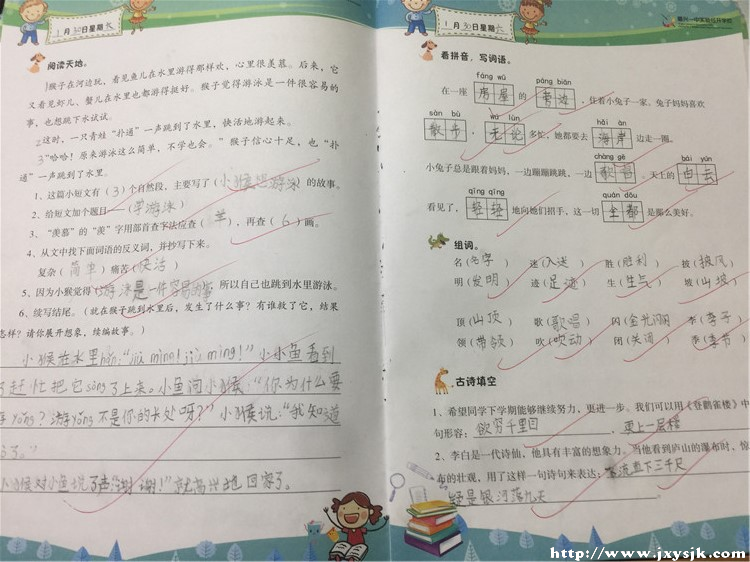 1月30日星期六
阅读天地。
猴子在河边玩，看见鱼儿在水里游得那样欢，心里很羡慕。后来，它
又看见虾儿，蟹儿在水里也都游得挺好。猴子觉得游泳是一件很容易的
事，也想跳下水试试。
2这时，一只青蛙“扑通”一声跳到了水里，快活地游起来。
3“哈哈！原来游泳这么简单，不学也会。”猴子信心十足，也“扑
通”一声跳到了水里。
1、这篇小短文有（3）个自然段，主要写了（小猴学游泳）的故事。
2、给短文加个题目——（学游泳）
3、“羡慕”的“羡”字用部首查字法应查（羊），再查（6）画。
4、从文中找下面词语的反义词，并抄写下来。
复杂（简单）痛苦（快活）
5、因为小猴觉得（游泳是一件容易的事 所以自己也跳到水里游泳。
6、续写结尾。（就在猴子跳到水后，发生了什么事？有谁救了它，结果
怎样？请你展开想象，续编故事。）
小猴在水里hǎn：“jiù mìng！jiù mìng！”小小鱼看到
了赶忙把它sòng了上来。小鱼问小猴：“你为什么要
yǒng？游yǒng不是你的长处呀？”小猴说：“我知道
了。”
小猴对小鱼说了声谢谢！”就高兴地回家了。
1月30日星期六
看拼音，写词语。
fáng wū páng biān
在一座 房屋 的 旁边，住着小兔子一家。兔子妈妈喜欢
sàn bù wú lùn hǎi àn
散步，无论 多忙，她都要去 海岸 边走一圈。
chàng gē bái yún
小兔子总是跟着妈妈，一边蹦蹦跳跳，一边 歌唱。天上的 白云
qīng qīng quán dōu
看见了，轻轻 地向她们招手，这一切 全都 是那么美好。
组词。
名（名字） 迷（入迷） 胜（胜利） 披（披风）
明（发明） 迹（足迹） 生（生气） 坡（山坡）
顶（山顶） 歌（歌唱） 闪（金光闪闪） 李（李子）
领（带领） 吹（吹动） 团（关闭） 季（季节）
古诗填空
1、希望同学下学期能够继续努力，更进一步。我们可以用《登鹳雀楼》中
句形容：欲穷千里目，更上一层楼
2、李白是一代诗仙，他具有丰富的想象力。当他看到庐山的瀑布时，惊
布的壮观，用了这样一句诗句来表达：飞流直下三千尺
疑是银河落九天
http://www.jxysjk.com